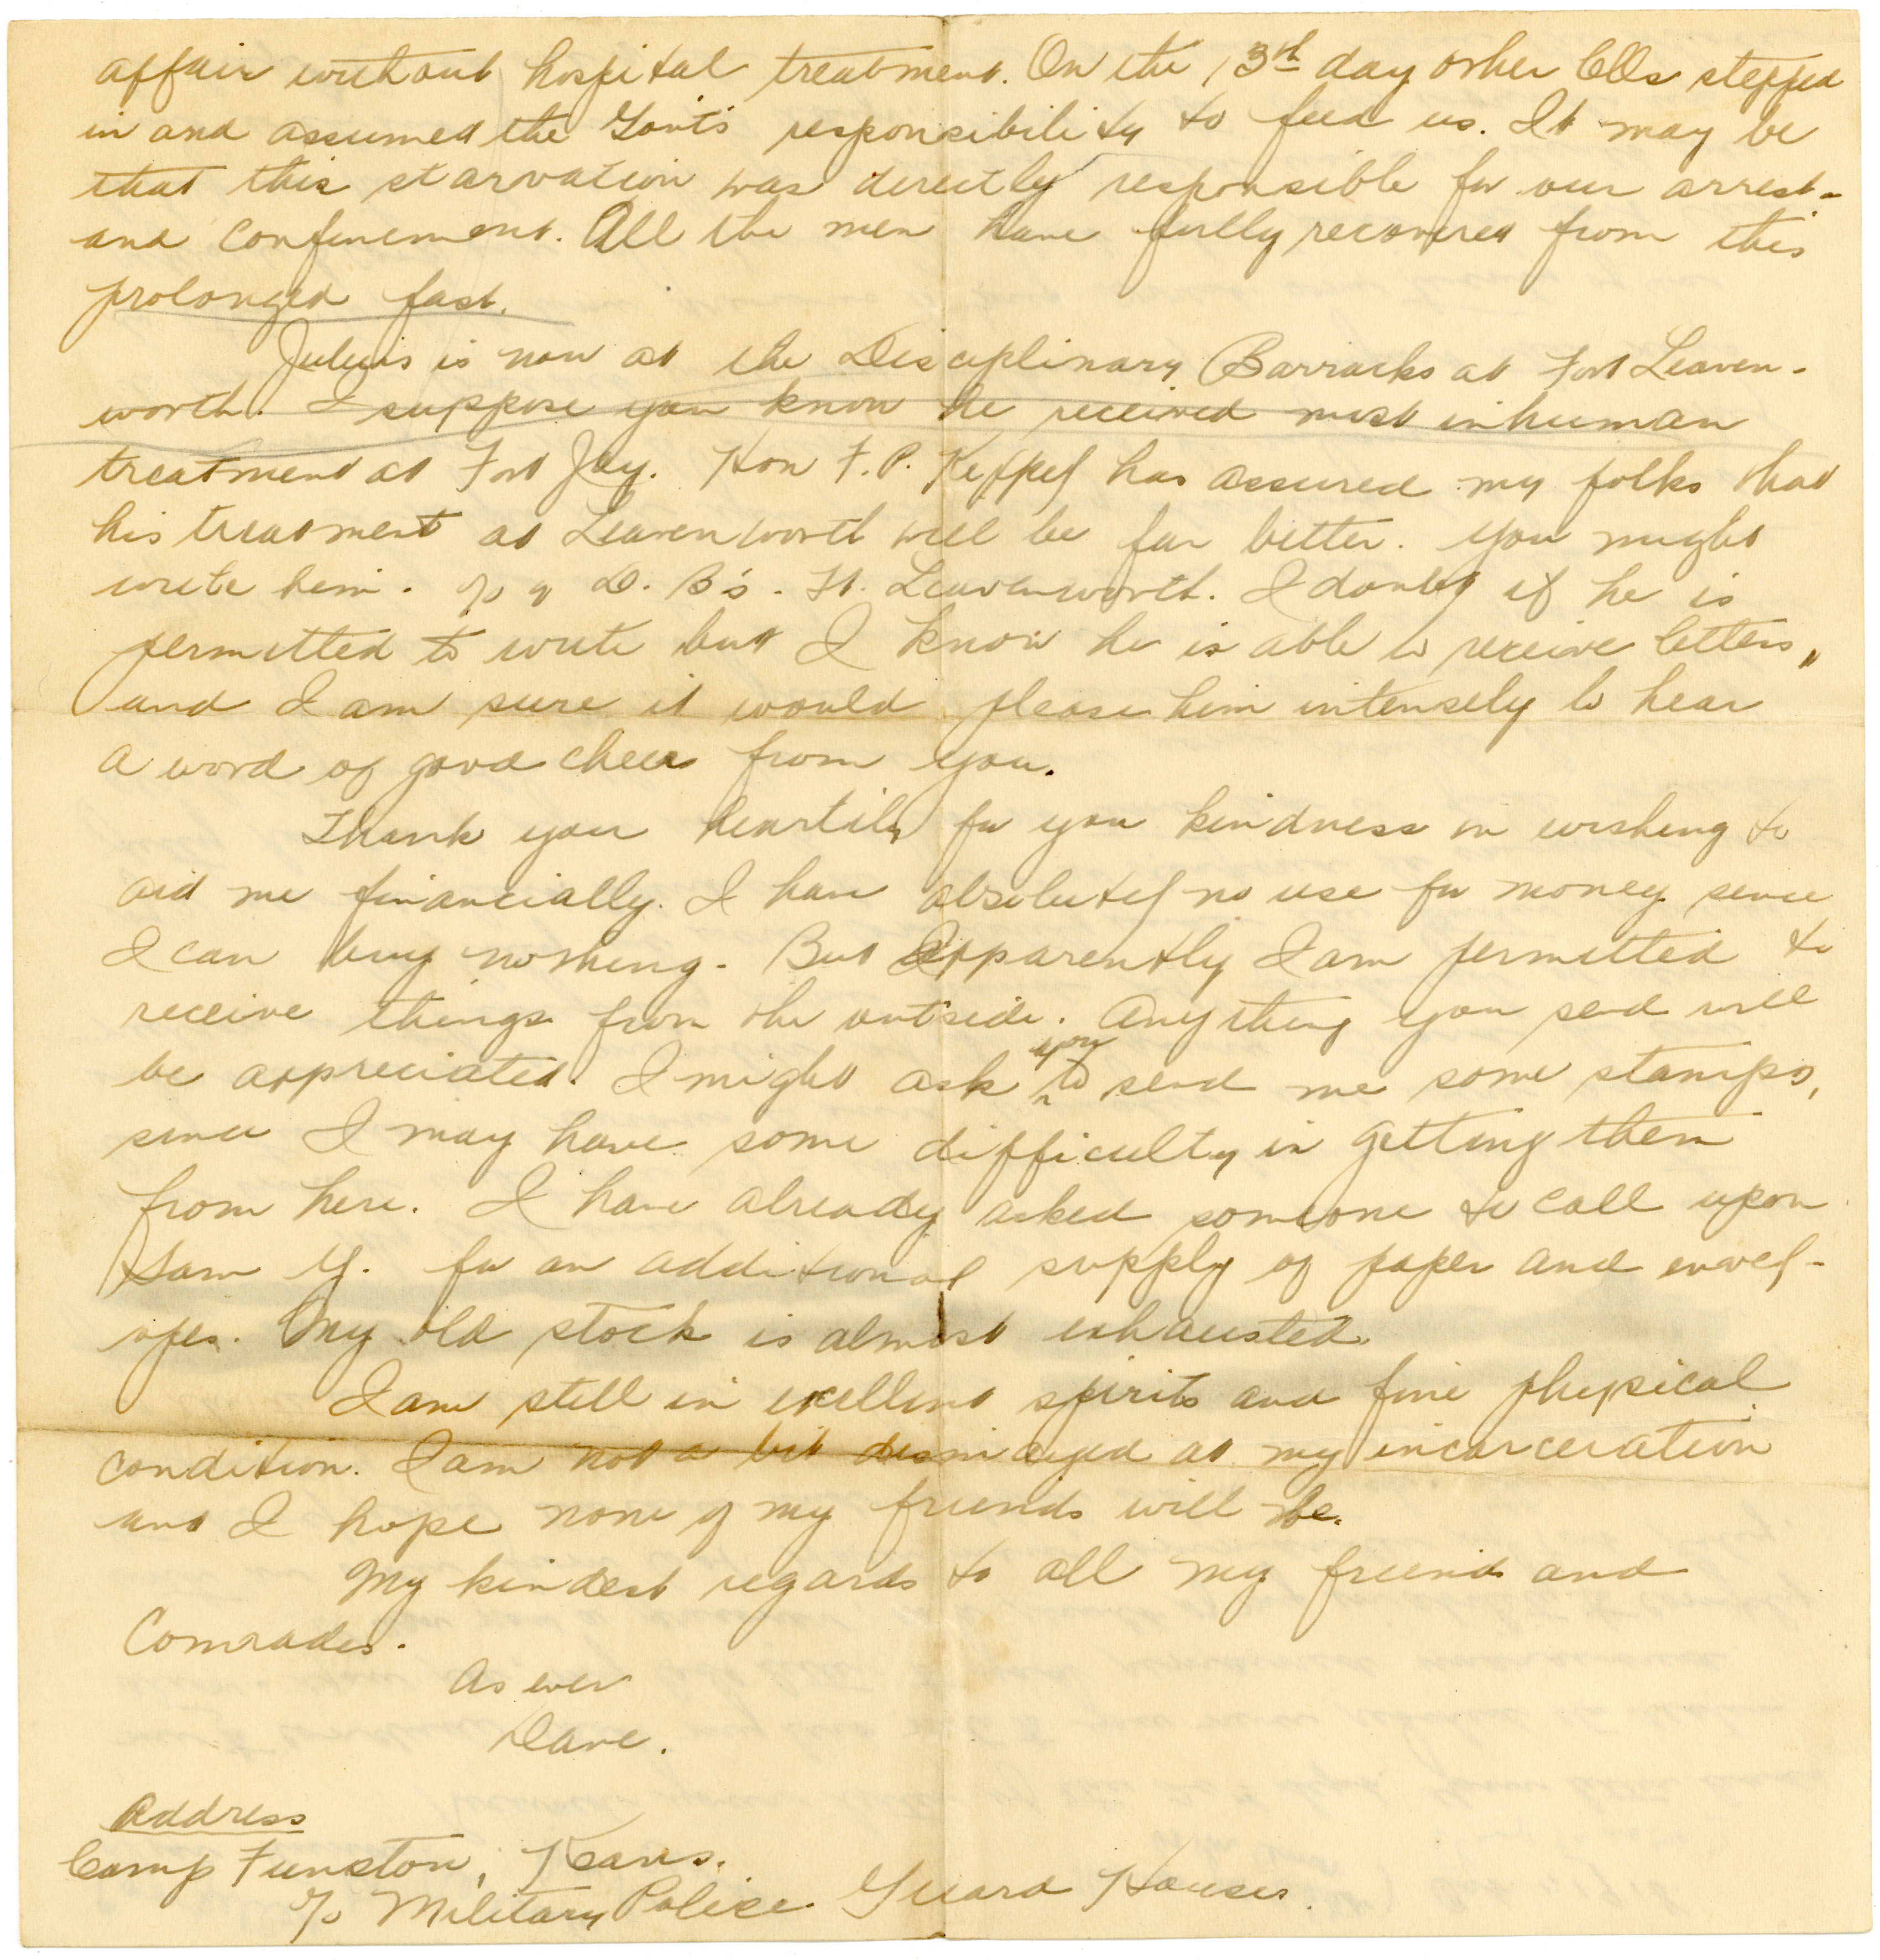 affair without hospital treatment. On the 13th day other COs stepped
in and assumed the Gov't's responsibility to feed us. It may be
that this starvation was directly responsible for our arrest-
and confinement. All the men have fully recovered from this
prolonged fast.
Juluis is now at the Disciplinary Barracks at Fort Leaven-
worth. I suppose you know he received most inhuman
treatment at Fort Jay. Hon F. P. Keppel has assured my folks that
his treatment at Leavenworth will be far better. You might
write him. c/o D. B's. Ft. Leavenworth. I doubt if he is
permitted to write but I know he is able to receive letters,
and I am sure it would please him intensely to hear
a word of good cheer from you.
Thank you heartily for you kindness in wishing to
aid me financially. I have absolutely no use for money since
I can buy nothing. But apparently I am permitted to
receive things from the outside. Anything you send will
be appreciated. I might ask you to send me some stamps,
since I may have some difficulty in getting them
from here. I have already asked someone to call upon
Sam G. for an additional supply of paper and envel-
opes. My old stock is almost exhausted.
I am still in excellent spirits and fine physical
condition. I am not a bit dismayed at my incarceration
and I hope none of my friends will be.
My kindest regards to all my friends and
Comrades.
As ever
Dave.
Address
Camp Funston, Kans.
c/o Military Police Guard House